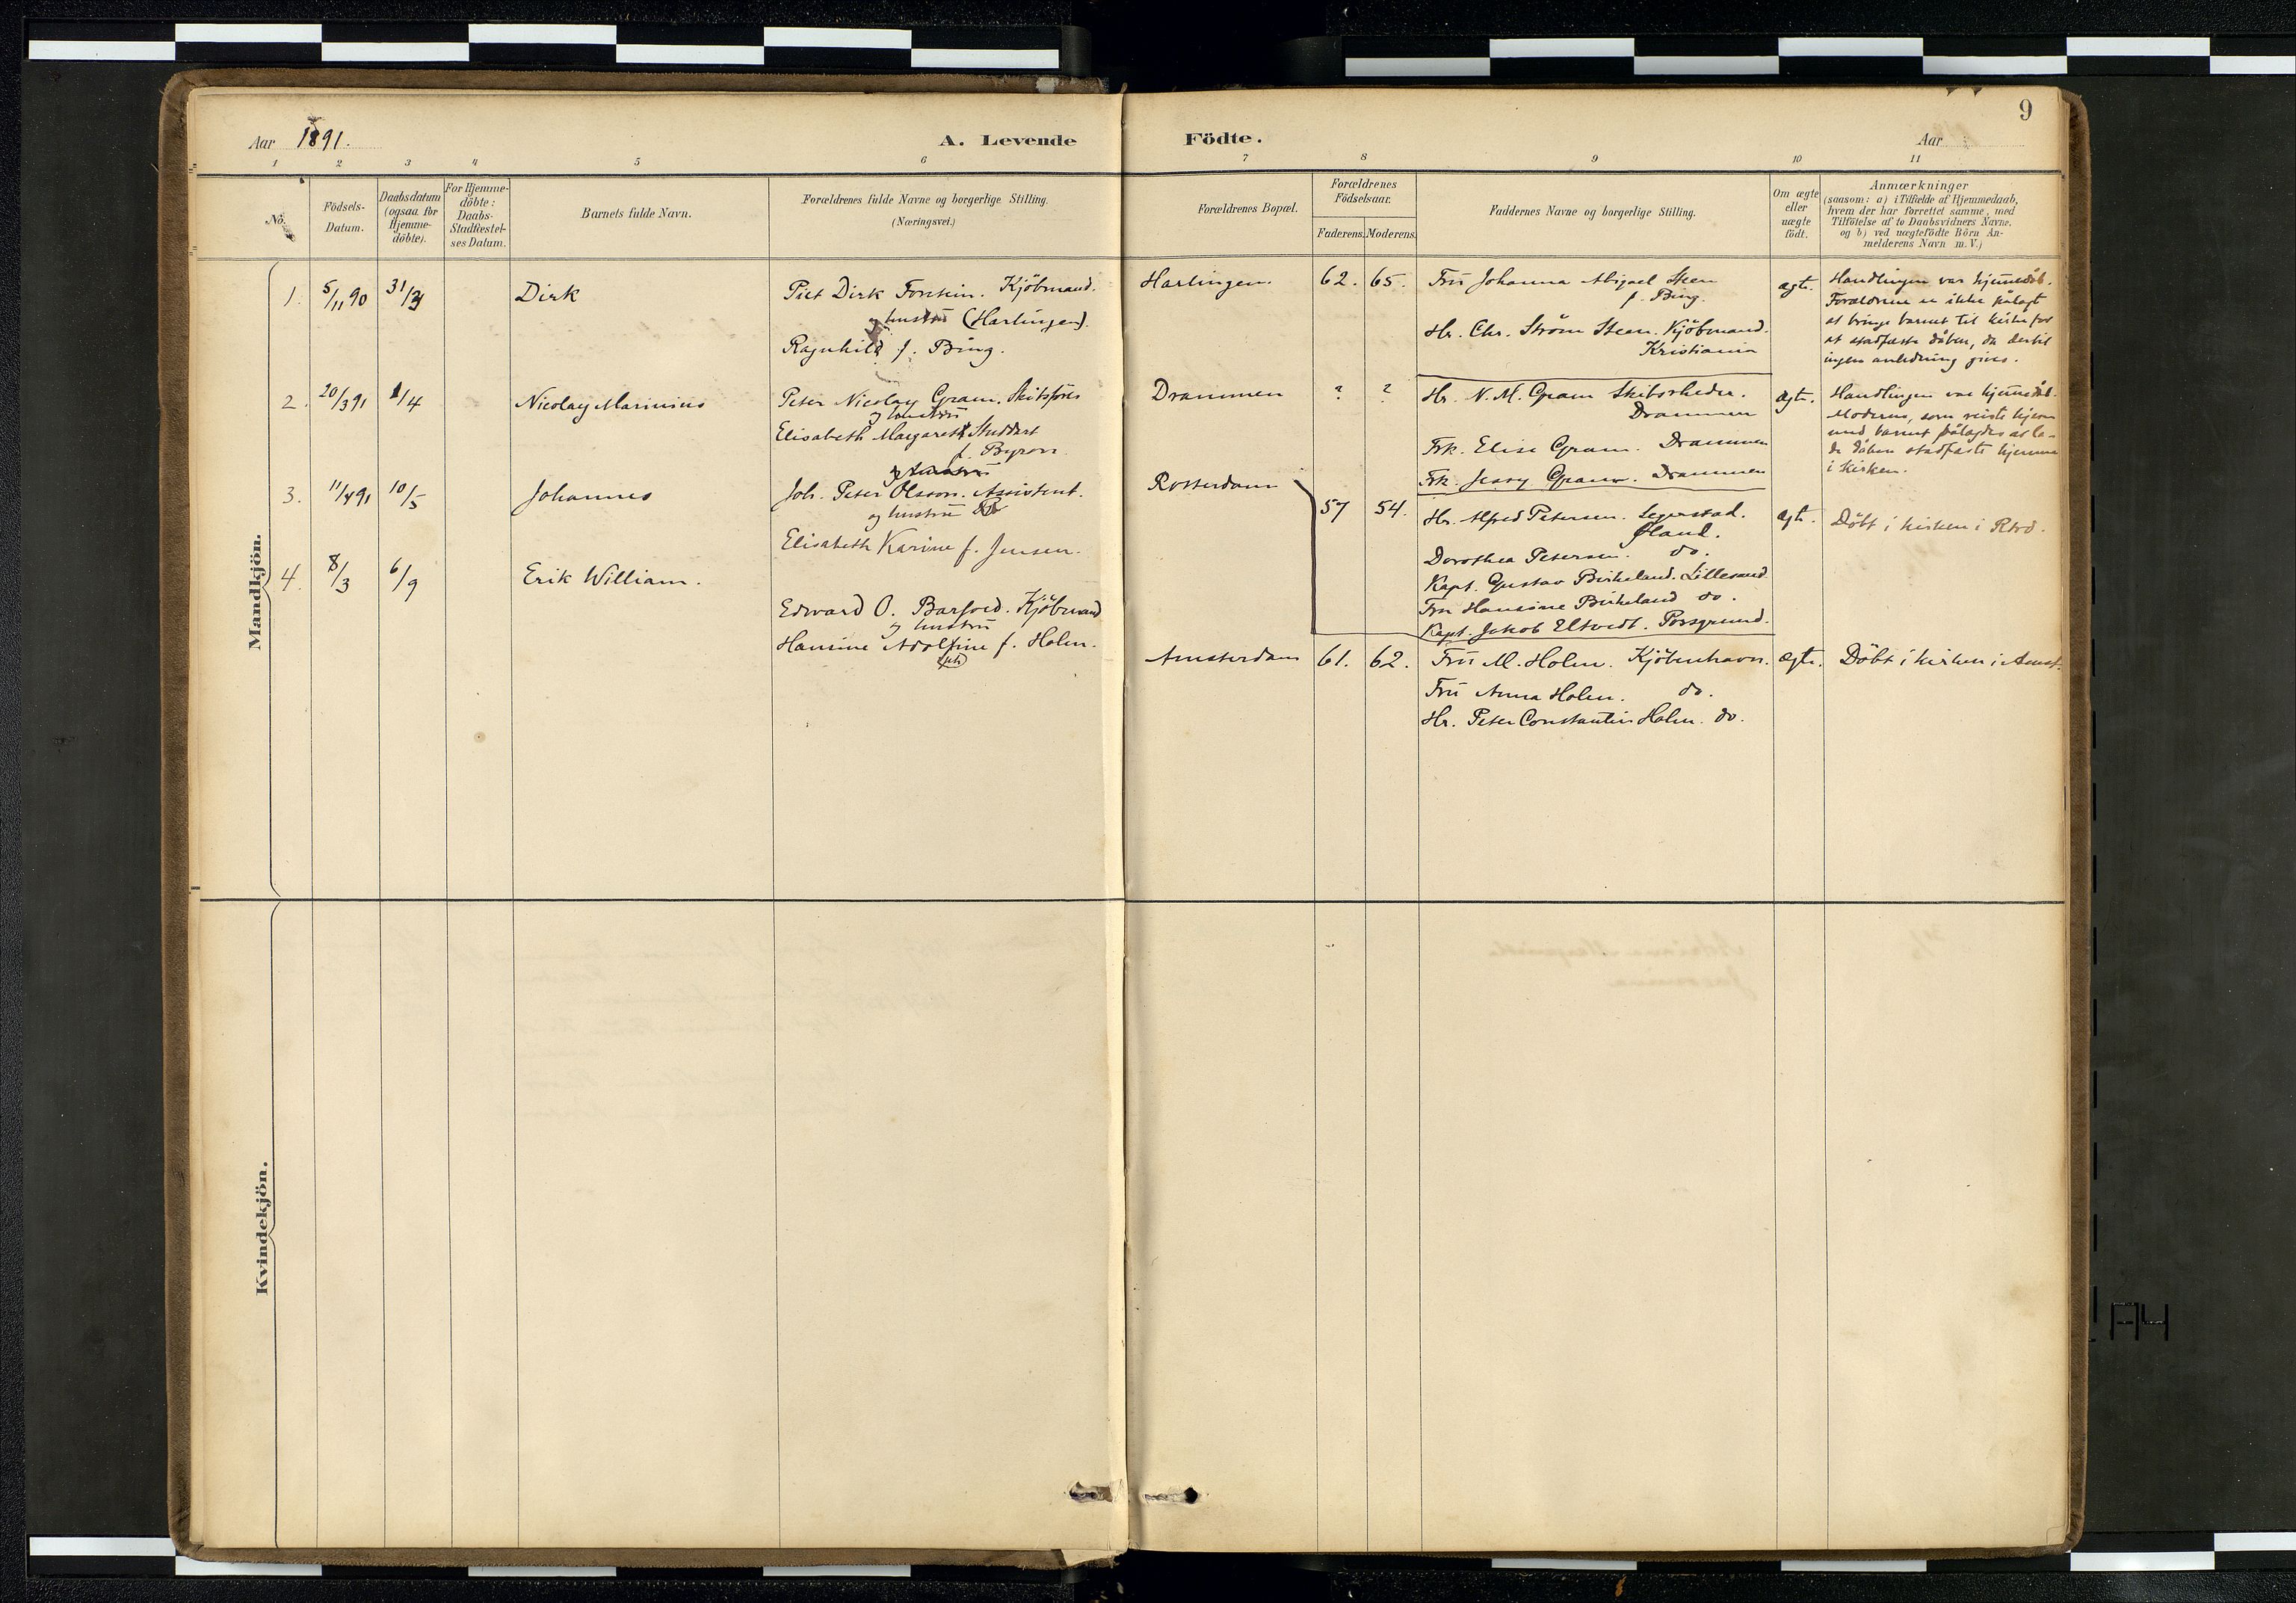 9
Aar 1891.
A. Levende Födte.
Aar
1 2 3 4 5 6 7 8 9 10 11
No.
Födsels-
Datum.
Daabsdatum
(ogsaa for
Hjemme-
döbte).
For Hjemme-
döbte:
Daabs-
Stadfæstel-
ses Datum.
Barnets fulde Navn.
Forældrenes fulde Navne og borgerlige Stilling.
(Næringsvei.)
Forældrenes Bopæl.
Forældrenes
Födselsaar.
Faderens. Moderens.
Faddernes Navne og borgerlige Stilling.
Om ægte
eller
uægte
födt.
Anmærkninger
(saasom: a) i Tilfælde af Hjemmedaab,
hvem der har forrettet samme, med
Tilföielse af to Daabsvidners Navne,
og b) ved uægtefödte Börn An-
melderens Navn m.V.)
Mandkjön.
1. 5/11 90 31/3
Dirk
Piet Dirk Fontein. Kjöbmand.
og hustru (Harlingen).
Ragnhild f. Bing.
Harlingen. 62. 65.
Fru Johanna Abigael Steen
f. Bing.
Hr. Chr. Ström Steen. Kjöbmand.
Kristiania
ægte.
Handlingen var hjemmedåb.
Forældrene er ikke pålagt
at bringe barnet til kirke for
at stadfæste dåben, da dertil
ingen anledning gives.
2. 20/3 91 1/4
Nicolay Marinius
Peter Nicolay Gram. Skibsförer
og hustru
Elisabeth Margareth Studdart
f. Byron
Drammen ? ?
Hr. N. M. Gram Skibsrheder.
Drammen
Frk. Elise Gram. Drammen
Frk. Jessy Gram. Drammen
ægte.
Handlingen var hjemmedåb.
Moderen, som reiste hjem
med barnet pålagdes at la-
de dåben stadfæste hjemme
i kirken.
3. 11/4 91 10/5
Johannes
og hustru
Joh. Peter Olsson. Assistent.
og hustru
Elisabeth Karine f. Jensen.
Rotterdam 57 54.
Hr. Alfred Petersen. Segerstad.
Øland.
Dorothea Petersen. do.
Kapt. Gustav Birkeland. Lillesand
Fru Hansine Birkeland do.
Kapt. Jakob Eltvedt. Porsgrund.
ægte.
Döbt i kirken i Rtrd.
4. 8/3 6/9
Erik William.
Edward O. Barfoed. Kjöbmand
og hustru
Hansine Adolfine f. Holm.
Amsterdam 61. 62.
Fru M. Holm. Kjöbenhavn.
Fru Anna Holm. do.
Hr. Peter Constantin Holm. do.
ægte.
Döbt i kirken i Amst.
Kvindekjön.